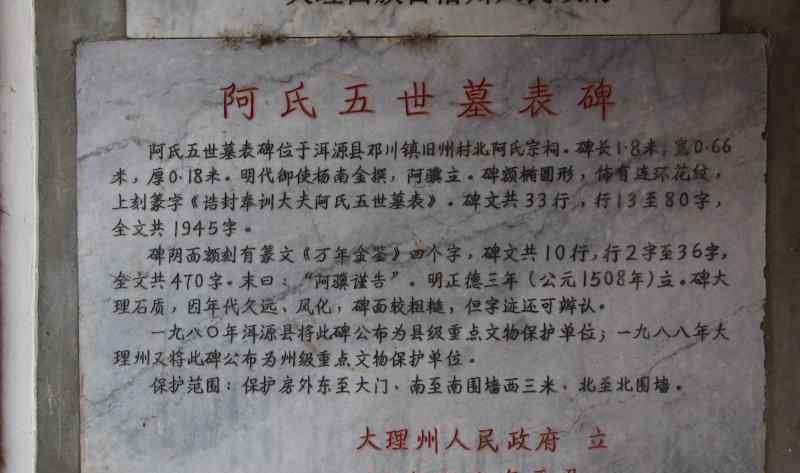 阿氏五世墓表碑
阿氏五世墓表碑位于洱源县邓川镇旧州村北阿氏宗祠。碑长1·8米,宽0·66
米,厚0·18米。明代御使杨南金撰,阿骥立。碑额椭圆形,饰有连环花纹,
上刻篆字《诰封奉训大夫阿氏五世墓表》。碑文共33行,行13至80字,
全文共1945字。
碑阴面额刻有篆文《万年金鉴》四个字,碑文共10行,行2字至36字,
全文共470字。末曰:“阿骥谨告”。明正德三年(公元1508年)立。碑大
理石质,因年代久远、风化,碑面较粗糙,但字迹还可辨认。
一九八〇年洱源县将此碑公布为县级重点文物保护单位;一九八八年大
理州又将此碑公布为州级重点文物保护单位。
保护范围:保护房外东至大门、南至南围墙西三米、北至北围墙。
大理州人民政府 立